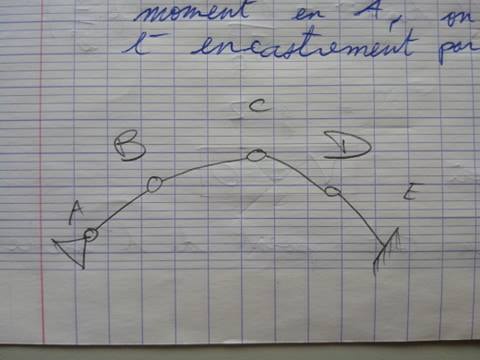 moment en A, on
l'encastrement par
C
B
D
A
E